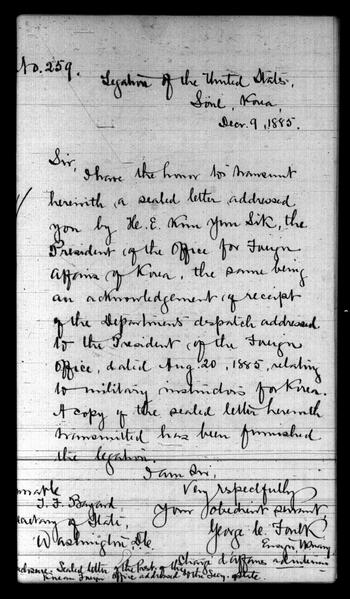 No. 259.
Legation of the United States,
Söul, Korea,
Decr. 9, 1885.
Sir,
I have the honor to transmit
herewith a sealed letter addressed
you by H. E. Kim Yun Sik, the
President of the Office for Foreign
Affairs of Korea, the same being
an acknowledgement of receipt
of the Department's despatch addressed
to the President of the Foreign
Office, dated Aug. 20, 1885, relating
to military instructors for Korea.
A copy of the sealed letter herewith
transmitted has been furnished
the legation.
I am Sir,
Very respectfully
T. F. Bayard
your obedient servant
Secretary of State,
George C. Foulk
Washington, D.C.
Ensign U.S. Navy
Chargé d'Affaires ad interim
Sealed letter of the Prest. of the
Korean Foreign Office addressed to the Secy. of State